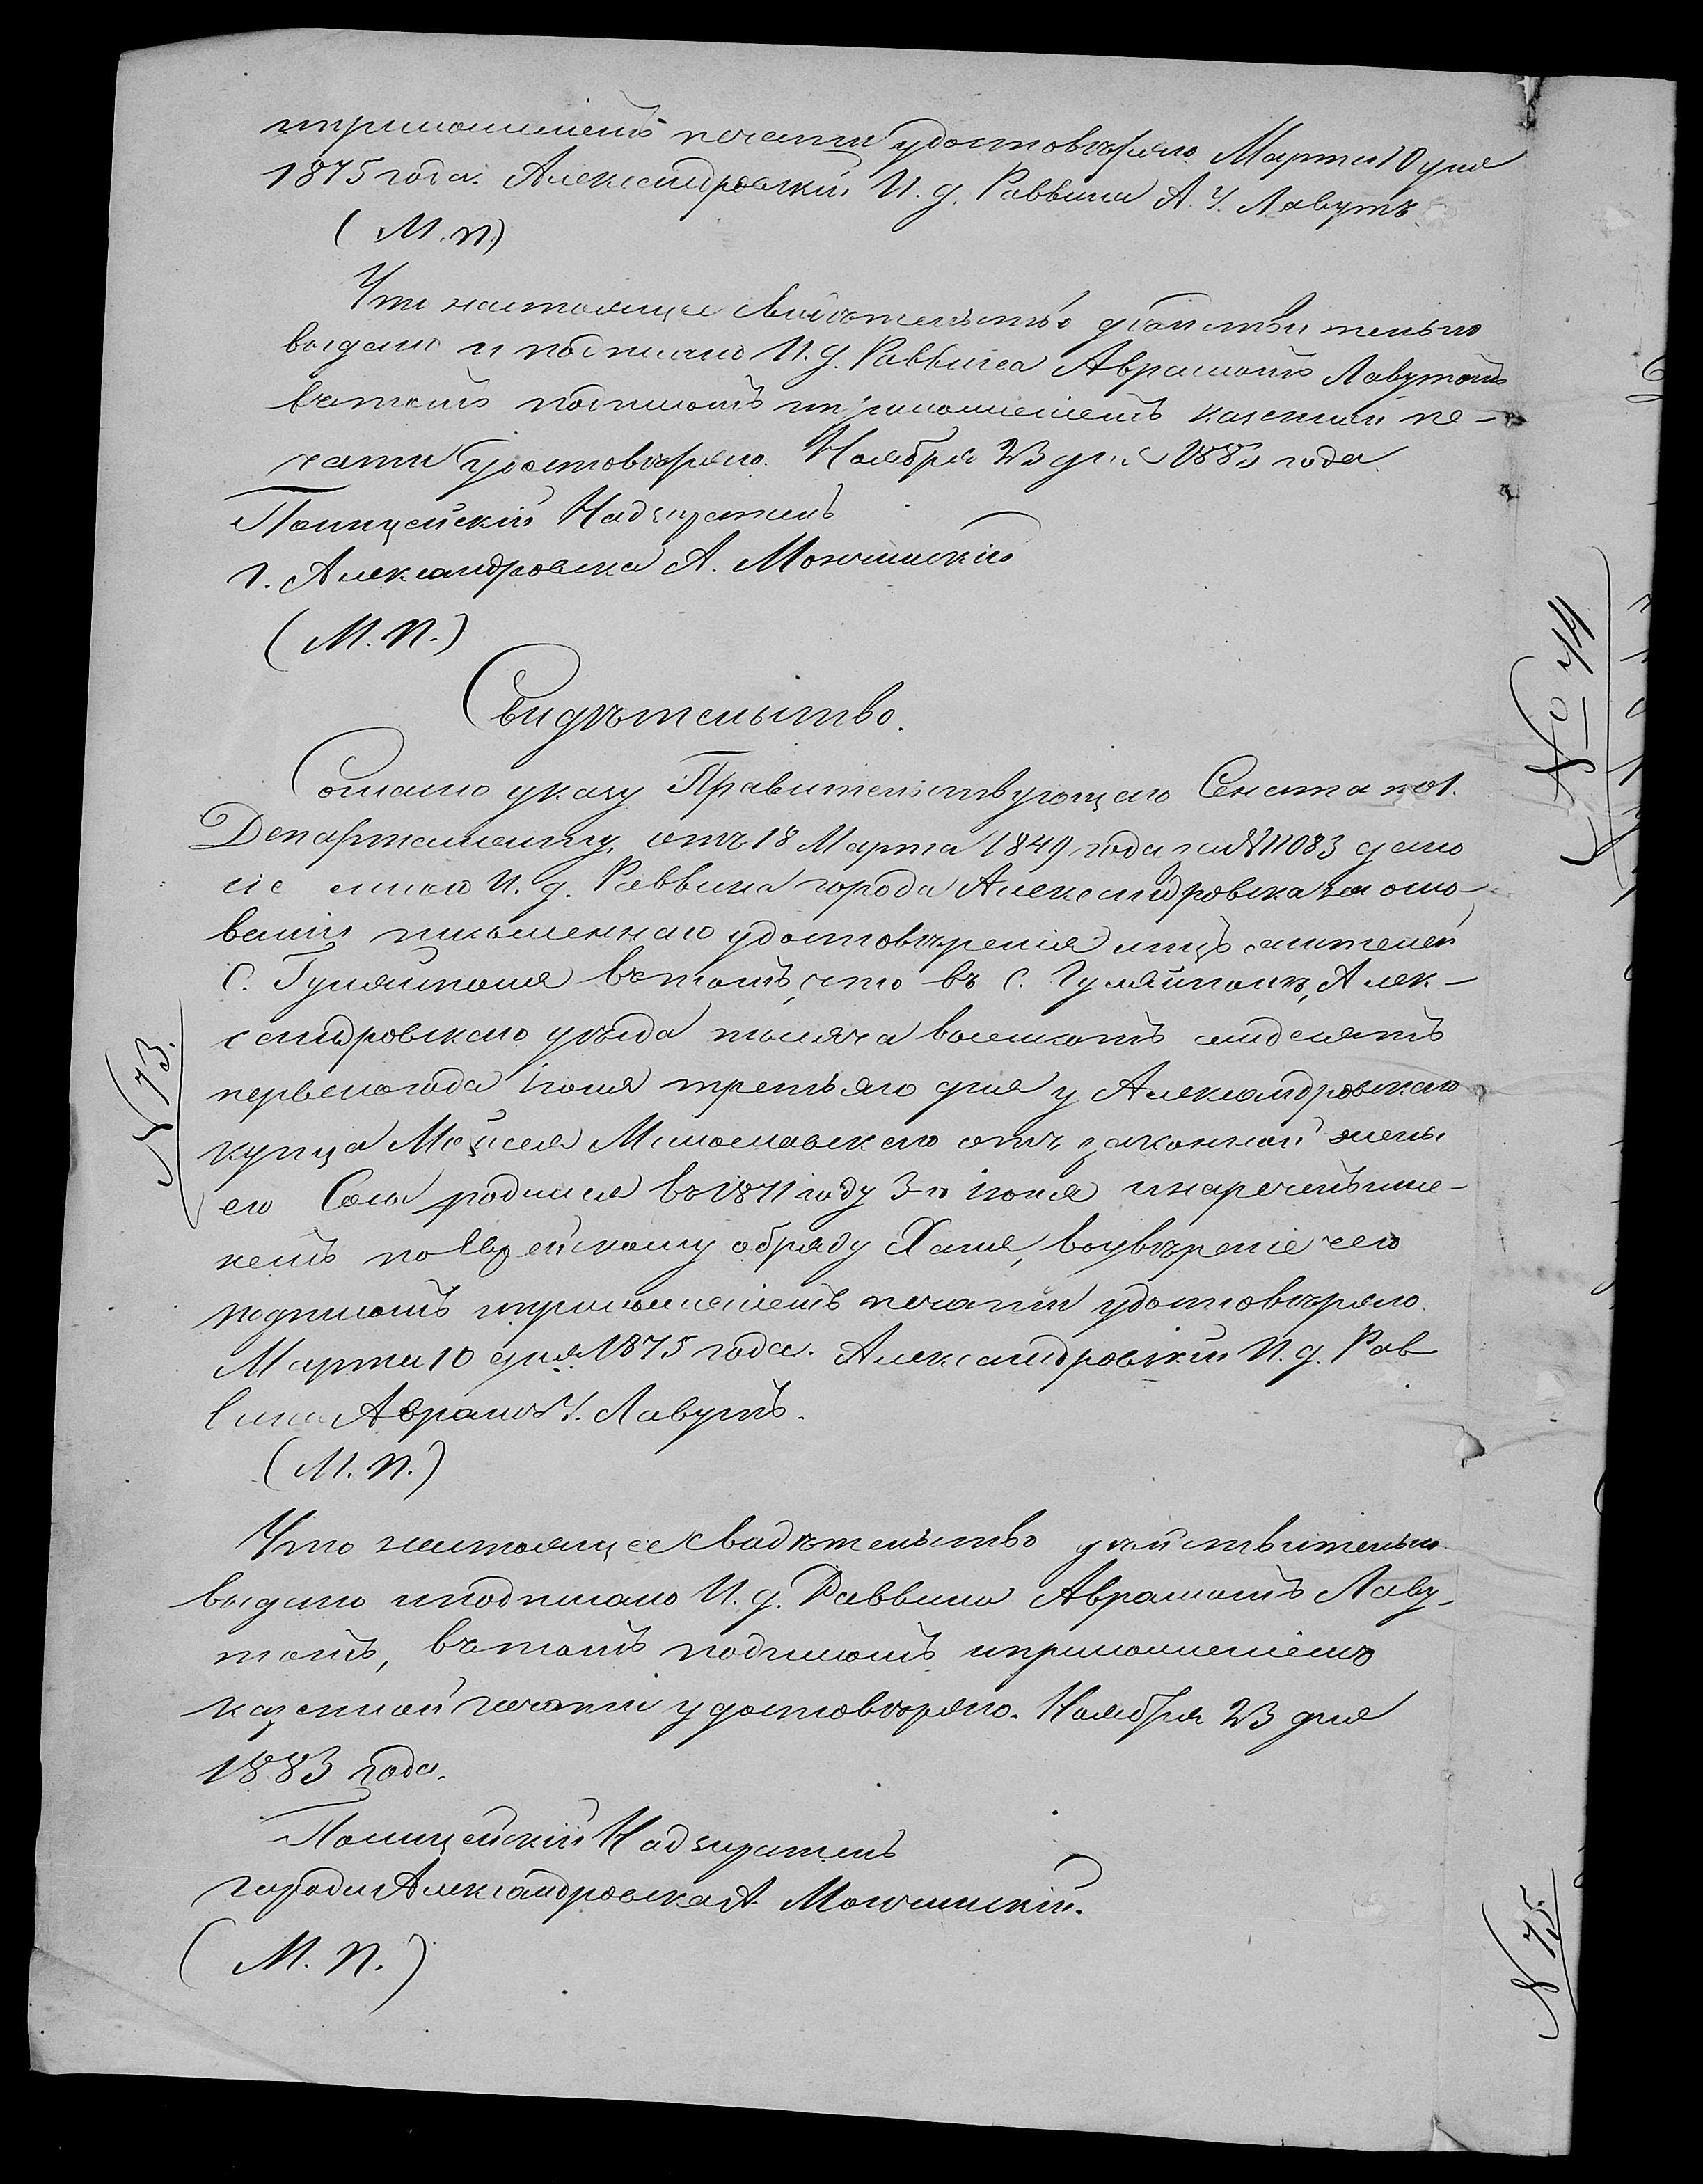 и приложеніемъ печати удостовѣряю Марта 10 дня
1875 года. Александровскій И. д. Раввина А. Ч. Лавутъ.
(М. П.)
Что настоящее свидѣтельство дѣйствительно
выдано и подписано И. д. Раввина Аврамомъ Лавутомъ
въ томъ подписомъ и приложеніемъ казенной пе-
чати удостовѣряю. Ноября 23 дня 1883 года.
Полицейскій Надзиратель
г. Александровска А.
(М. П.)
Свидѣтельство.
Согласно указу Правительствующаго Сената по 1.
Департаменту, отъ 18 Марта 1849 года за № 11083 дано
сіе мною И. д. Раввина города Александровска на осно-
ваніи письменнаго удостовѣренія лицъ жителей
С. Гуляйполя въ томъ, что въ С. Гуляйполѣ, Алек-
сандровскаго уѣзда тысяча восемсотъ семдесятъ
перваго года Іюня третьяго дня у Александровскаго
купца Мойсея Милославскаго отъ законной жены
его Соси родился въ 1871 году 3-го Іюня и нареченъ име-
немъ по Еврейскому обряду Хаимъ, во увѣреніе чего
подписомъ и приложеніемъ печати удостовѣряю.
Марта 10 дня 1875 года. Александровскій И. д. Рав
вина Аврамъ Ч. Лавутъ.
(М. П.)
Что настоящее свидѣтельство дѣйствительно
выдано и подписано И. д. Раввина Аврамомъ Лаву-
томъ, въ томъ подписомъ и приложеніемъ
казенной печати удостовѣряю. Ноября 23 дня
1883 года.
Полицейскій Надзиратель
города Александровска А.
(М. П.)
№ 73.
№ 74
№ 75.